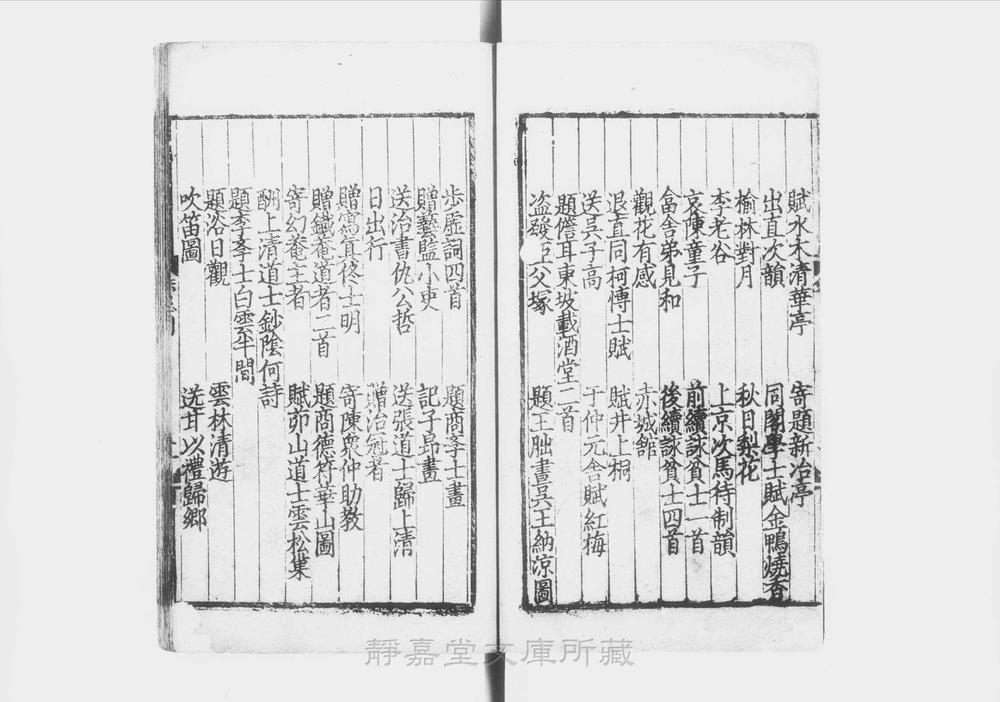 賦水木清華亭　寄題新冶亭
出直次韻　同閣學士賦金鴨燒香
榆林對月　秋日梨花
李老谷　上京次馬待制韻
哀陳童子　前續詠貧士一首
舍弟見和　後續詠貧士四首
觀花有感　赤城館
退直同柯博士賦　賦井上桐
送吳子高　于仲元舍賦紅梅
題儋耳東坡載酒堂二首
盗發亞父塚　題王朏畫吳王納涼圖
步虛詞四首　題商李士畫
贈藝監小吏　記子昂畫
送治書仇公哲　送張道士歸上清
日出行　贈治冠者
贈寫真佟士明　寄陳衆仲助教
贈鐵菴道者二首　題商德符華山圖
寄幻菴主者　賦茆山道士雲松巢
酬上清道士鈔陰何詩
題李李士白雲半間
題浴日觀　雲林清遊
吹笛圖　送甘以禮歸鄉
靜嘉堂文庫所藏